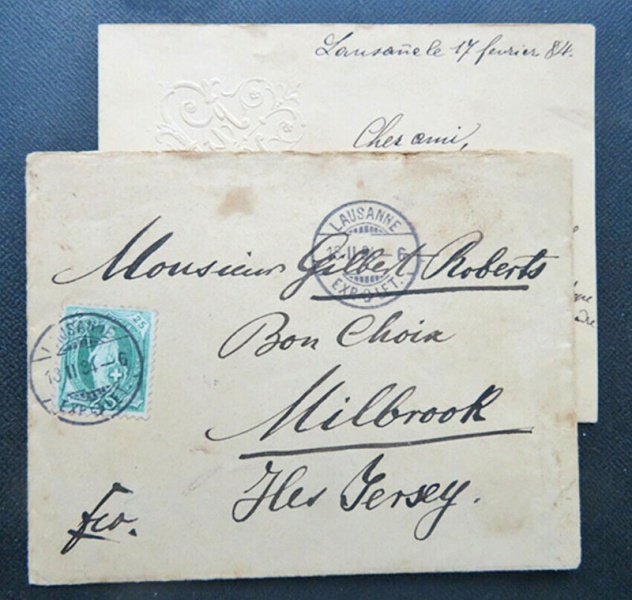 Lausanne le 17 fevrier 84.
Cher ami,
LAUSANNE
EXP. LET.
Monsieur Gilbert Roberts
Bon Choix
Milbrook
Iles Jersey.
fco.
LAUSANNE
25